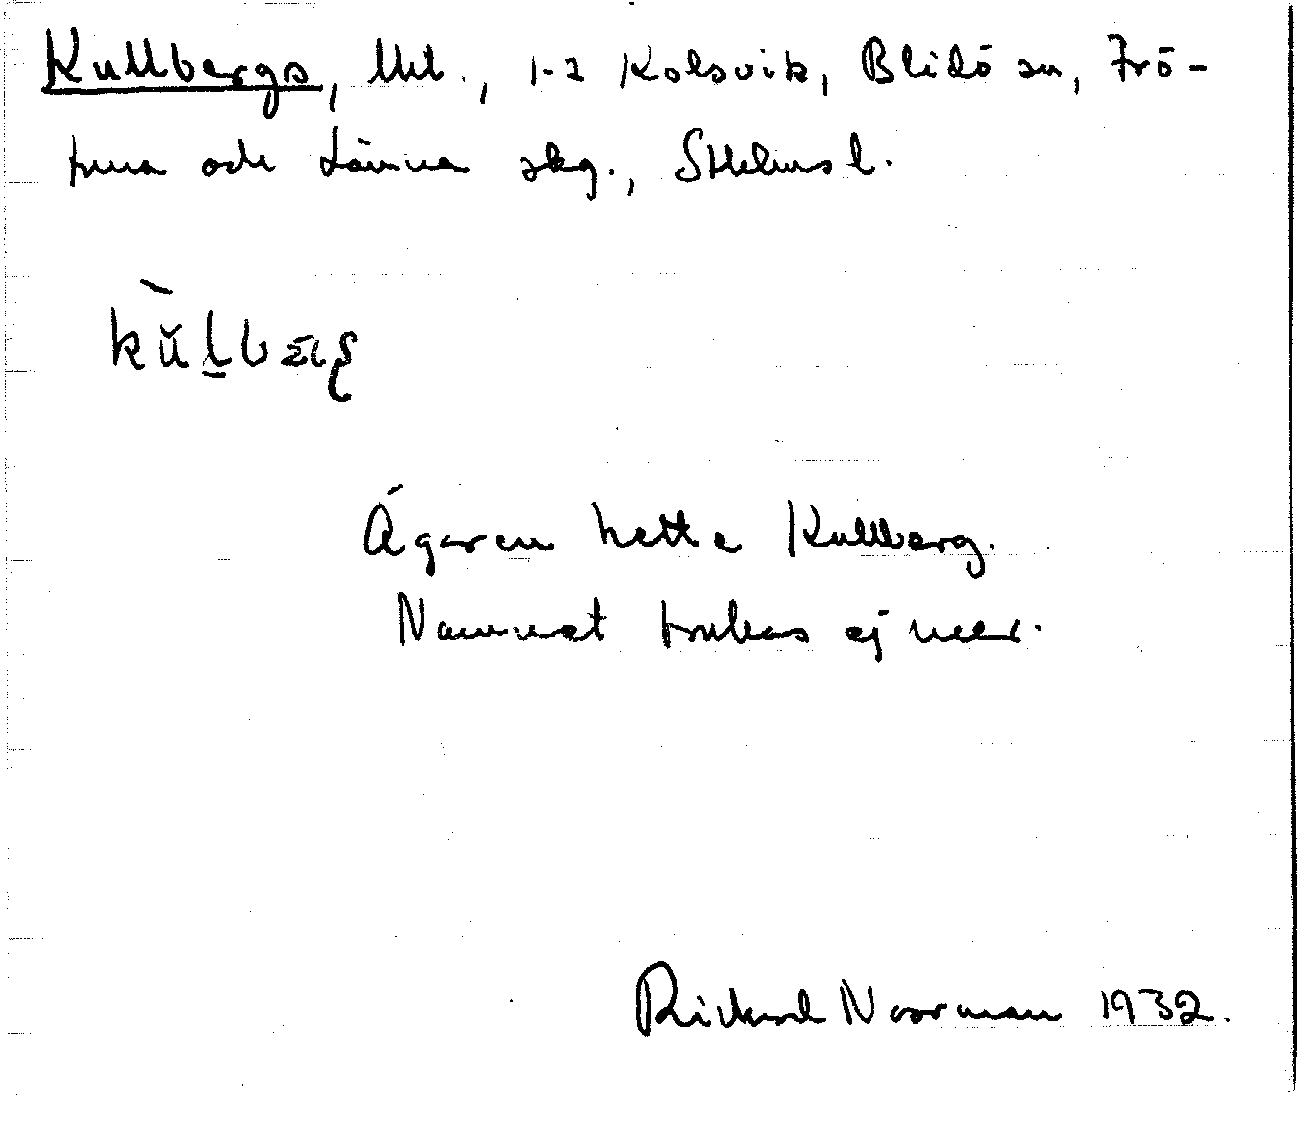 Kullbergs, Uht., 1-2 Kolsvik, Blidö sn, Frö-
tuna och Länna skg., Sthlms l.
Ägaren hette Kullberg.
Namnet brukas ej mer.
Rickard Noorman 1932.